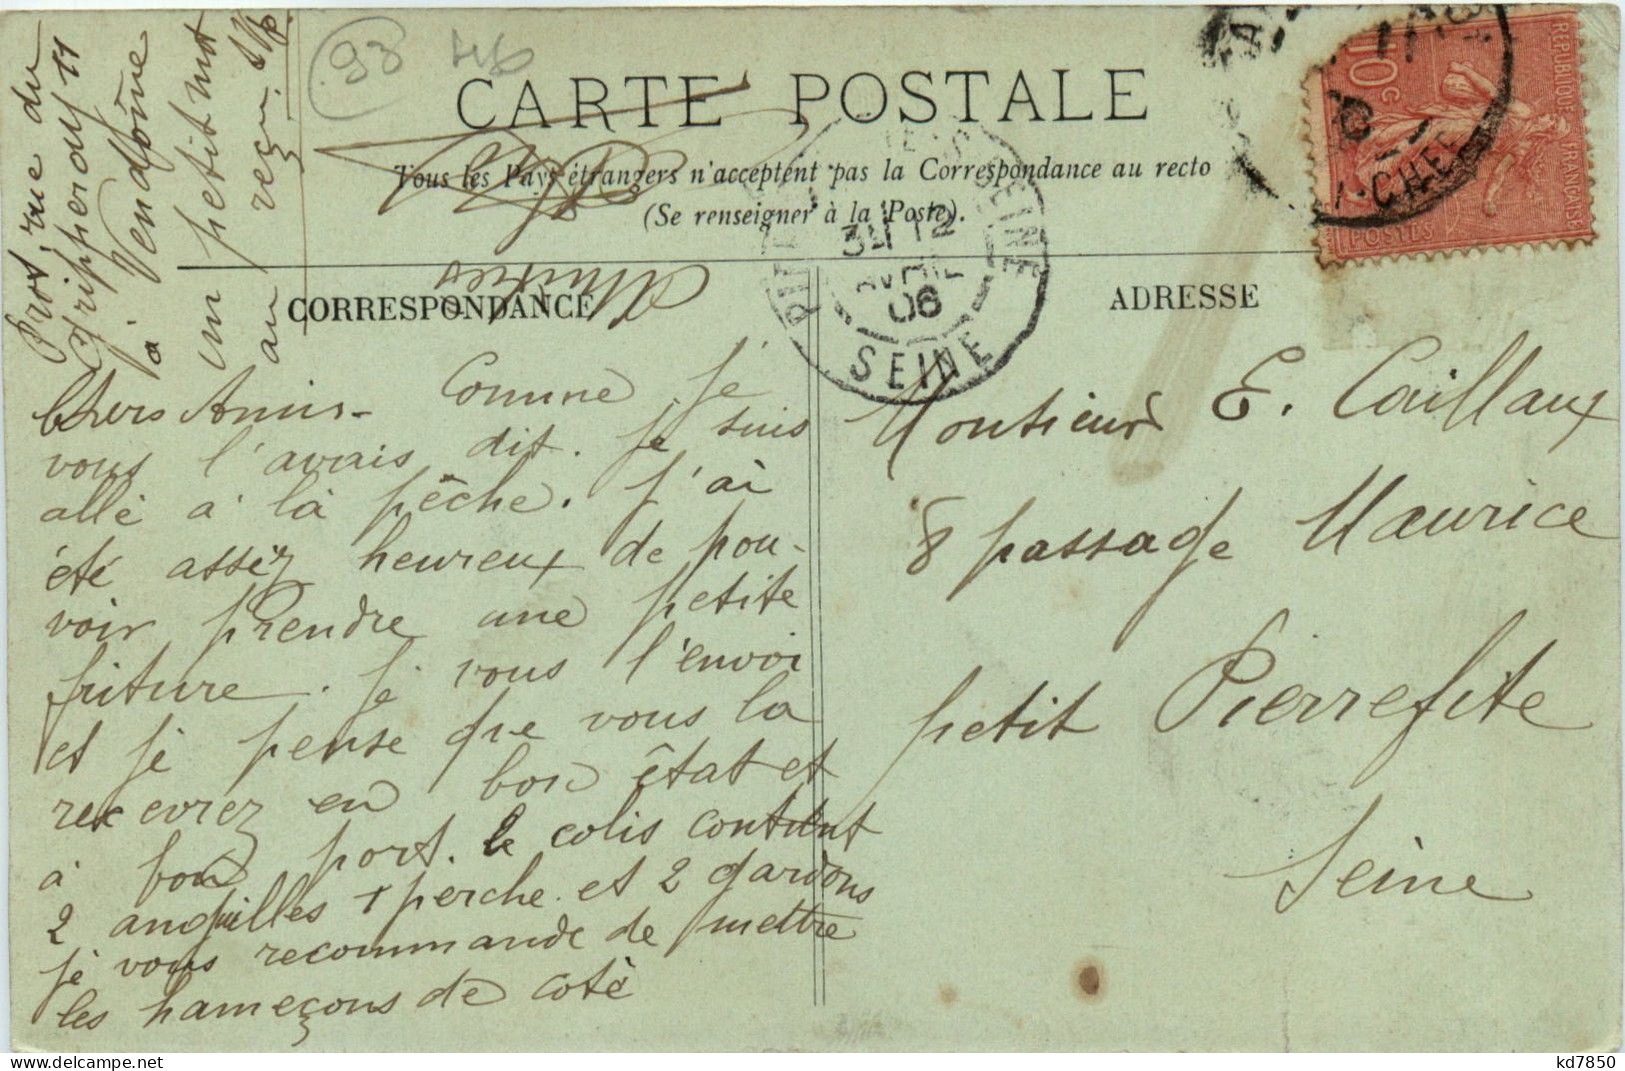 93
CARTE POSTALE
Tous les Pays étrangers n'acceptent pas la Correspondance au recto
(Se renseigner à la Poste).
CORRESPONDANCE
ADRESSE
RÉPUBLIQUE FRANÇAISE
10c
POSTES
12
AVRIL
06
SEINE
Prot, rue du
11
à Vendôme
un petit mot
au reçu. SVP
Amitiés
Chers Amis - Comme je
vous l'avais dit. je suis
allé à la pêche. J'ai
été assez heureux de pou-
voir prendre une petite
friture. je vous l'envoi
et je pense que vous la
recevrez en bon état et
à bon port. le colis contient
2 anguilles 1 perche et 2 gardons
je vous recommande de mettre
les hameçons de coté
Monsieur E. Caillaux
8 passage Maurice
petit Pierrefite
Seine
kd7850